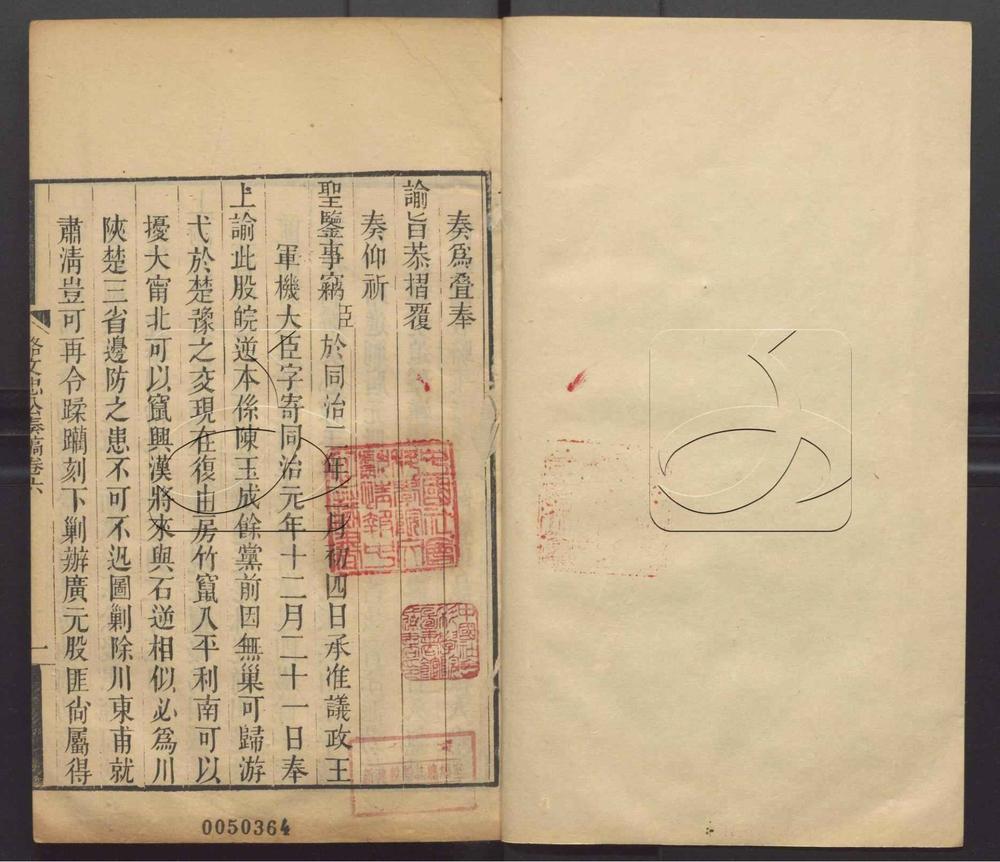 奏爲叠奉
諭旨恭摺覆
奏仰祈
聖鑒事竊臣於同治二年二月初四日承准議政王
軍機大臣字寄同治元年十二月二十一日奉
上諭此股皖逆本係陳玉成餘黨前因無巢可歸游
弋於楚豫之交現在復由房竹竄入平利南可以
擾大甯北可以竄興漢將來與石逆相似必爲川
陝楚三省邊防之患不可不迅圖剿除川東甫就
肅清豈可再令蹂躪刻下剿辦廣元股匪尙屬得
駱文忠公奏稿卷六
一
0050364